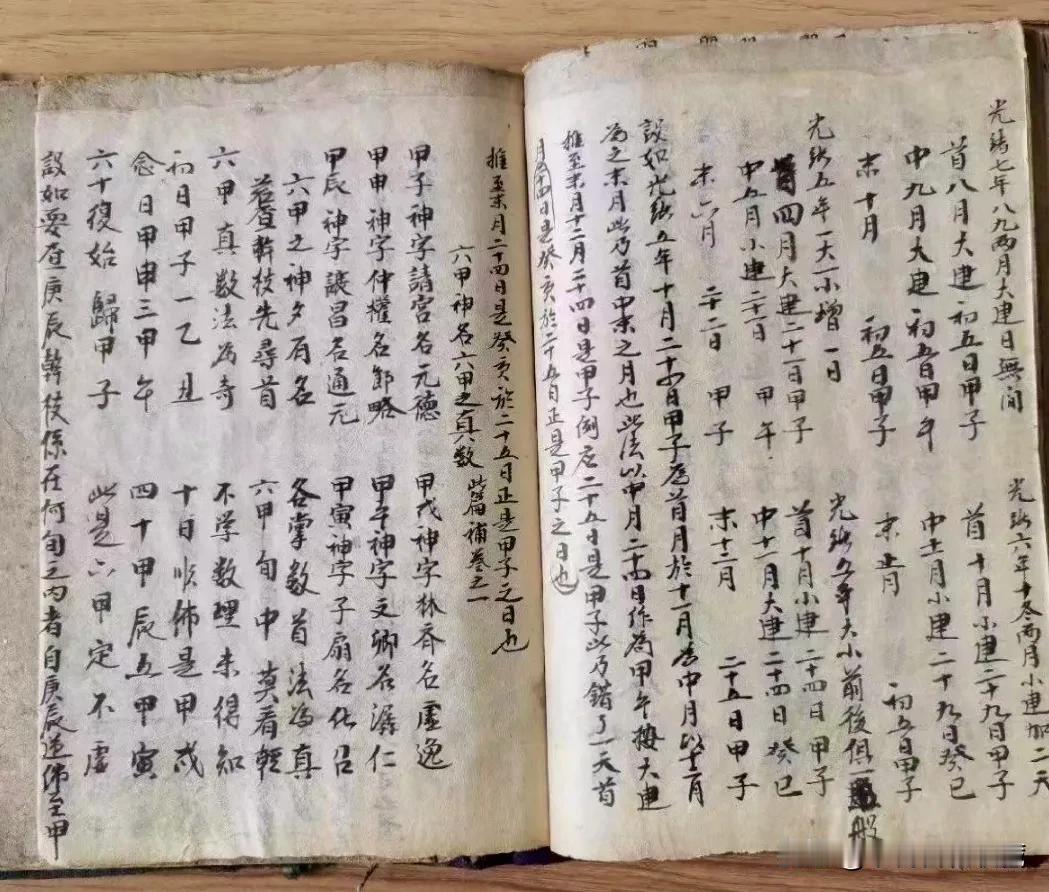 光緒七年八九兩月大建日無間
首八月大建 初五日甲子
中九月大建 初五日甲午
末十月 初五日甲子
光緒六年十冬兩月小建加二天
首十月小建二十九日甲子
中十一月小建二十九日癸巳
末十二月 初五日甲子
光緒五年一大一小增一日
四月大建二十一日甲子
中五月小建二十一日 甲午
末六月 二十二日 甲子
光緒年大小前後俱一般
首十月小建二十四日甲子
中十一月大建二十四日癸巳
末十二月 二十五日甲子
設如光緒五年十月二十四日甲子為首月於十一月為中月以十二月
為之末月此乃首中末之月也此法以中月二十四日作為甲午按大建
推至末月十二月二十四日是甲子例应二十五日是甲子此乃錯了一天首
月二十四日是癸亥於二十五日正是甲子之日也
推至末月二十四日是癸亥於二十五日正是甲子之日也
六甲神名六甲之真数 此篇補卷之一
甲子神字請宮名元德 甲戌神字林齊名虛逸
甲申神字仲權名節略 甲午神字文卿名潺仁
甲辰神字讓昌名通元 甲寅神字子扇名化召
六甲之神夕有名 各掌数首法為真
若查幹枝先尋首 六甲旬中莫看輕
六甲真数法為奇 不学数理未得知
初日甲子一乙丑 十日順佈是甲戌
念日甲申三甲午 四十甲辰五甲寅
六十復始歸甲子 此是六甲定不虛
設如要查庚辰幹枝係在何旬之內者自庚辰逆佈至甲